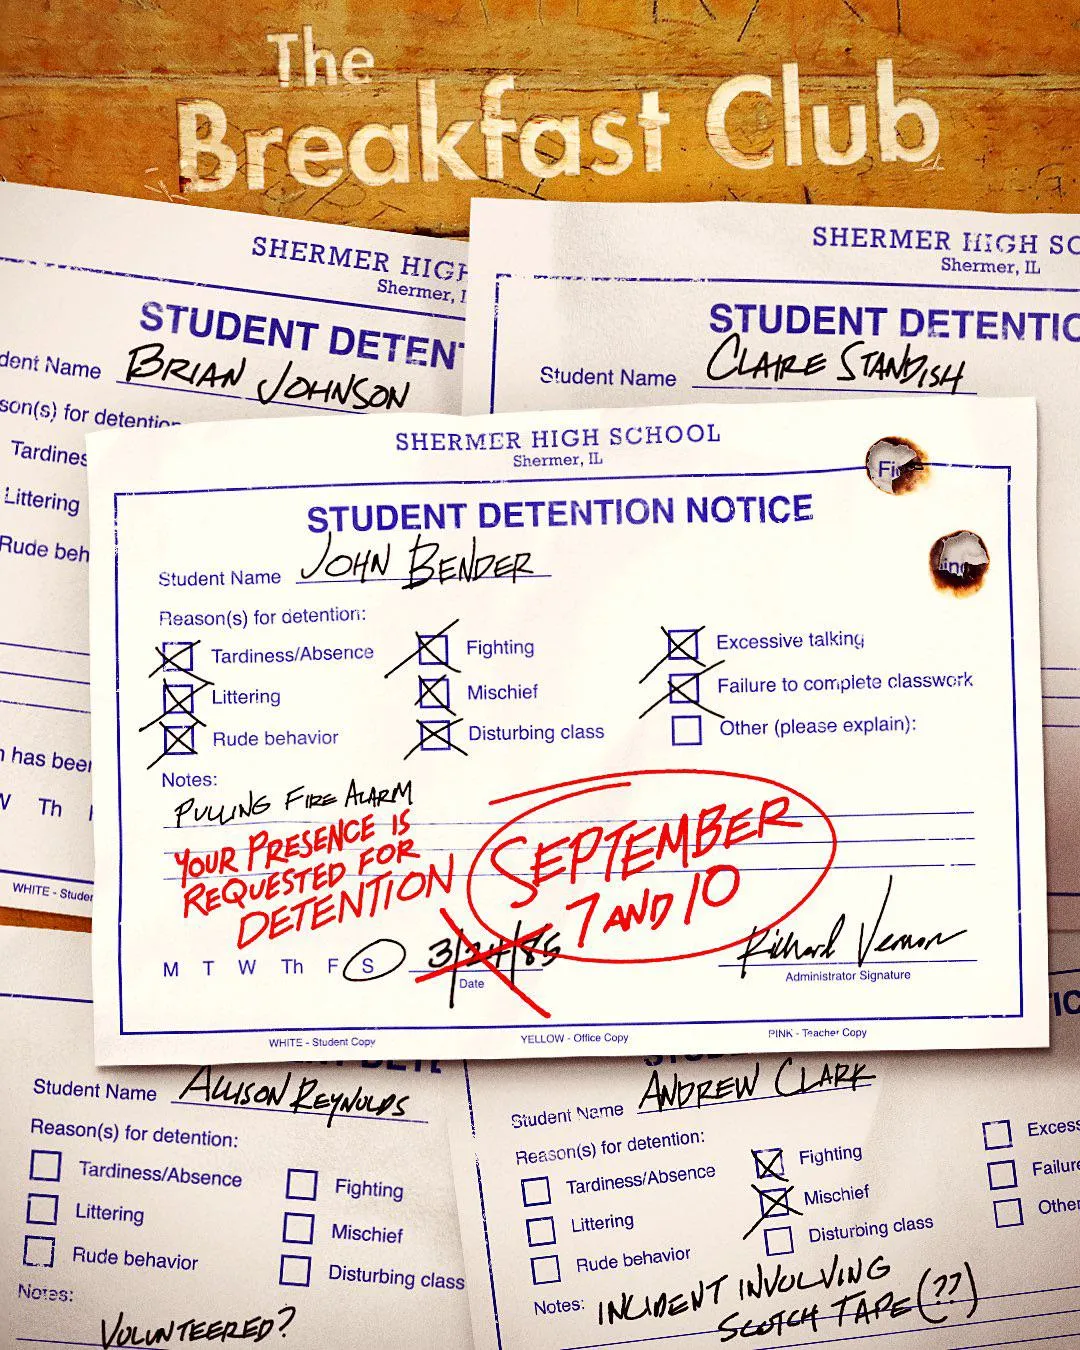 The
Breakfast Club
SHERMER HIGH
Shermer, I
STUDENT DETEN
dent Name BRIAN JOHNSON
son(s) for detention
Tardines
Littering
Rude beh
n has beer
V Th
WHITE - Studen
SHERMER HIGH SC
Shermer, IL
STUDENT DETENTIO
Student Name CLAIRE STANDISH
SHERMER HIGH SCHOOL
Shermer, IL
STUDENT DETENTION NOTICE
Student Name JOHN BENDER
Reason(s) for detention:
Tardiness/Absence Fighting Excessive talking
Littering Mischief Failure to complete classwork
Rude behavior Disturbing class Other (please explain):
Fi
in
Notes:
PULLING FIRE ALARM
YOUR PRESENCE IS
REQUESTED FOR
DETENTION
SEPTEMBER
7 AND 10
M T W Th F S 3/24/85
Date
Richard Vernon
Administrator Signature
WHITE - Student Copy YELLOW - Office Copy PINK - Teacher Copy
Student Name ALLISON REYNOLDS
Reason(s) for detention:
Tardiness/Absence Fighting
Littering Mischief
Rude behavior Disturbing class
Notes:
VOLUNTEERED?
Student Name ANDREW CLARK
Reason(s) for detention:
Tardiness/Absence Fighting Excess
Littering Mischief Failure
Rude behavior Disturbing class Other
Notes: INCIDENT INVOLVING
SCOTCH TAPE (??)